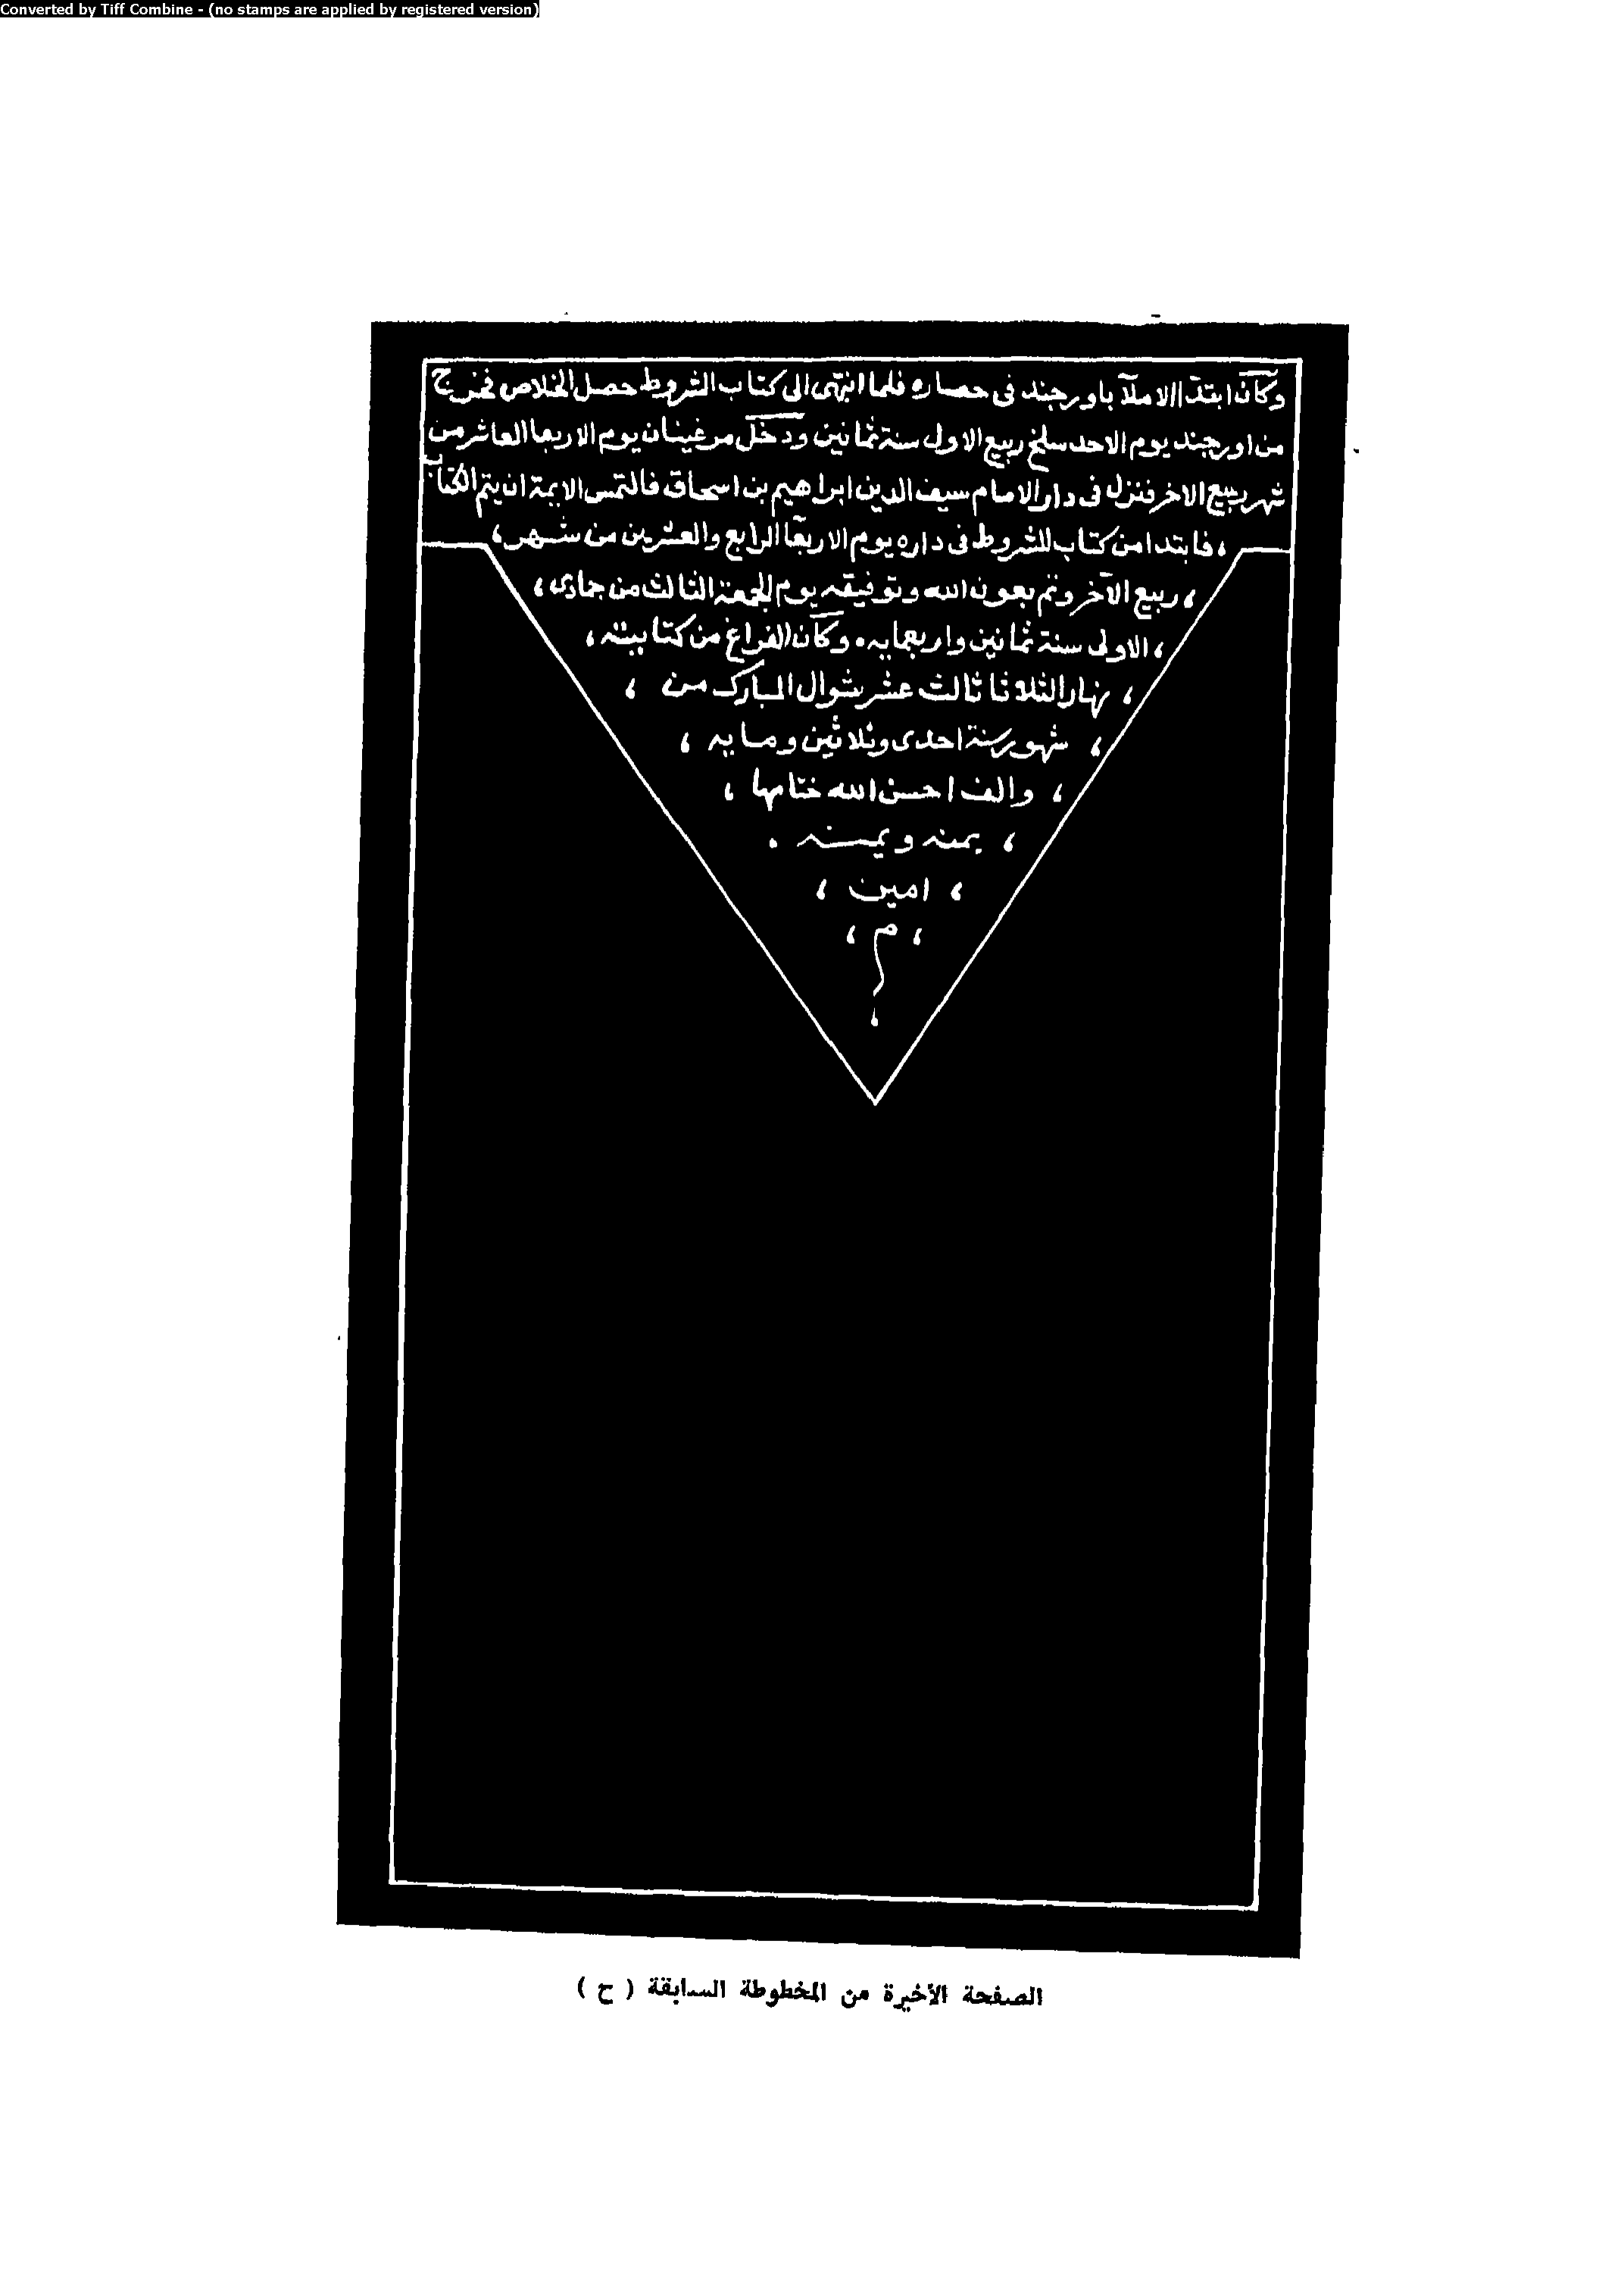 Converted by Tiff Combine - (no stamps are applied by registered version)
وكان ابتدآ الاملآ باورجند فى حصاره فلما انتهى الى كتاب الشروط حصل الخلاص فخرج
من اورجند يوم الاحد سلخ ربيع الاول سنة ثمانين ودخل مرغينان يوم الاربعا العاشر من
شهر ربيع الاخر فنزل فى دار الامام سيف الدين ابراهيم بن اسحاق فالتمس الايمة ان يتم الكتاب
، فابتدا من كتاب الشروط فى داره يوم الاربعآ الرابع والعشرين من شهر ،
، ربيع الآخر وتم بعون الله وتوفيقه يوم الجمعة الثالث من جمادى ،
، الاولى سنة ثمانين واربعمايه . وكان الفراغ من كتابيته ،
، نهار الثلاثا ثالث عشر شوال المبارك من ،
، شهور سنة احدى وثلاثين ومايه ،
، والف احسن الله ختامها ،
، بمنه ويمنه .
، امين ،
، م ،
الصفحة الأخيرة من المخطوطة السابقة ( ح )